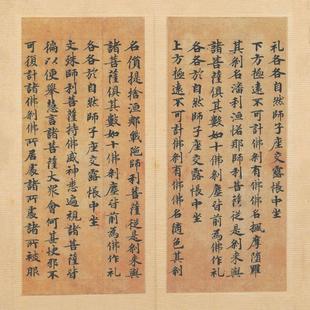 礼各各自然師子座交露帳中坐
下方極遠不可計佛剎有佛佛名楓摩墮羅
其剎名潘利洹諾那師利菩薩從是剎來與
諸菩薩俱其數如十佛剎塵皆前為佛作礼
各各於自然師子座交露帳中坐
上方極遠不可計佛剎有佛佛名墮色其剎
名質提捨漁那戰陁師利菩薩從是剎來與
諸菩薩俱其數如十佛剎塵皆前為佛作礼
各各於自然師子座交露帳中坐
文殊師利菩薩持佛威神悉遍視諸菩薩皆
徧以便舉慧言諸菩薩大眾會何其快耶不
可復計諸佛剎佛所居處諸所處諸所被服